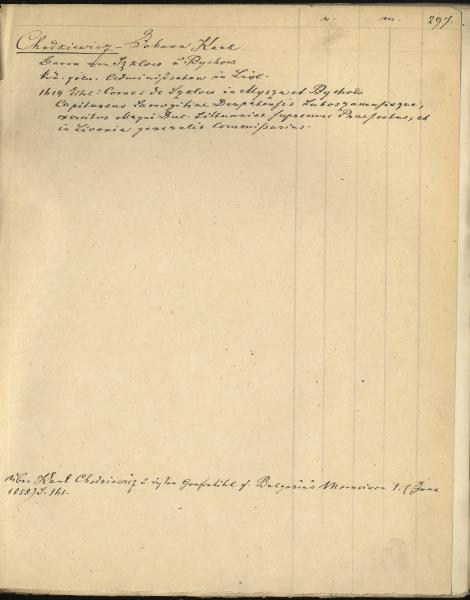 n. m. 297.
3
Chodkiewicz – Johann Karl
Baron von Szklow u Bychow
Kön. poln. Administrator in Livl.
1614 Titl: Comes de Szklow in Mysza et Bychow
Capitaneus Samogitiae Derpatensis Luboszanensisque,
exercitus Magni Duc. Littuaniae supremus Praefectus, et
in Livonia generalis Commissarius.
Über Karl Chodkiewicz u. Grafentitel s. Bulgarin's Memoiren 1. (Jena
1858) S. 161.